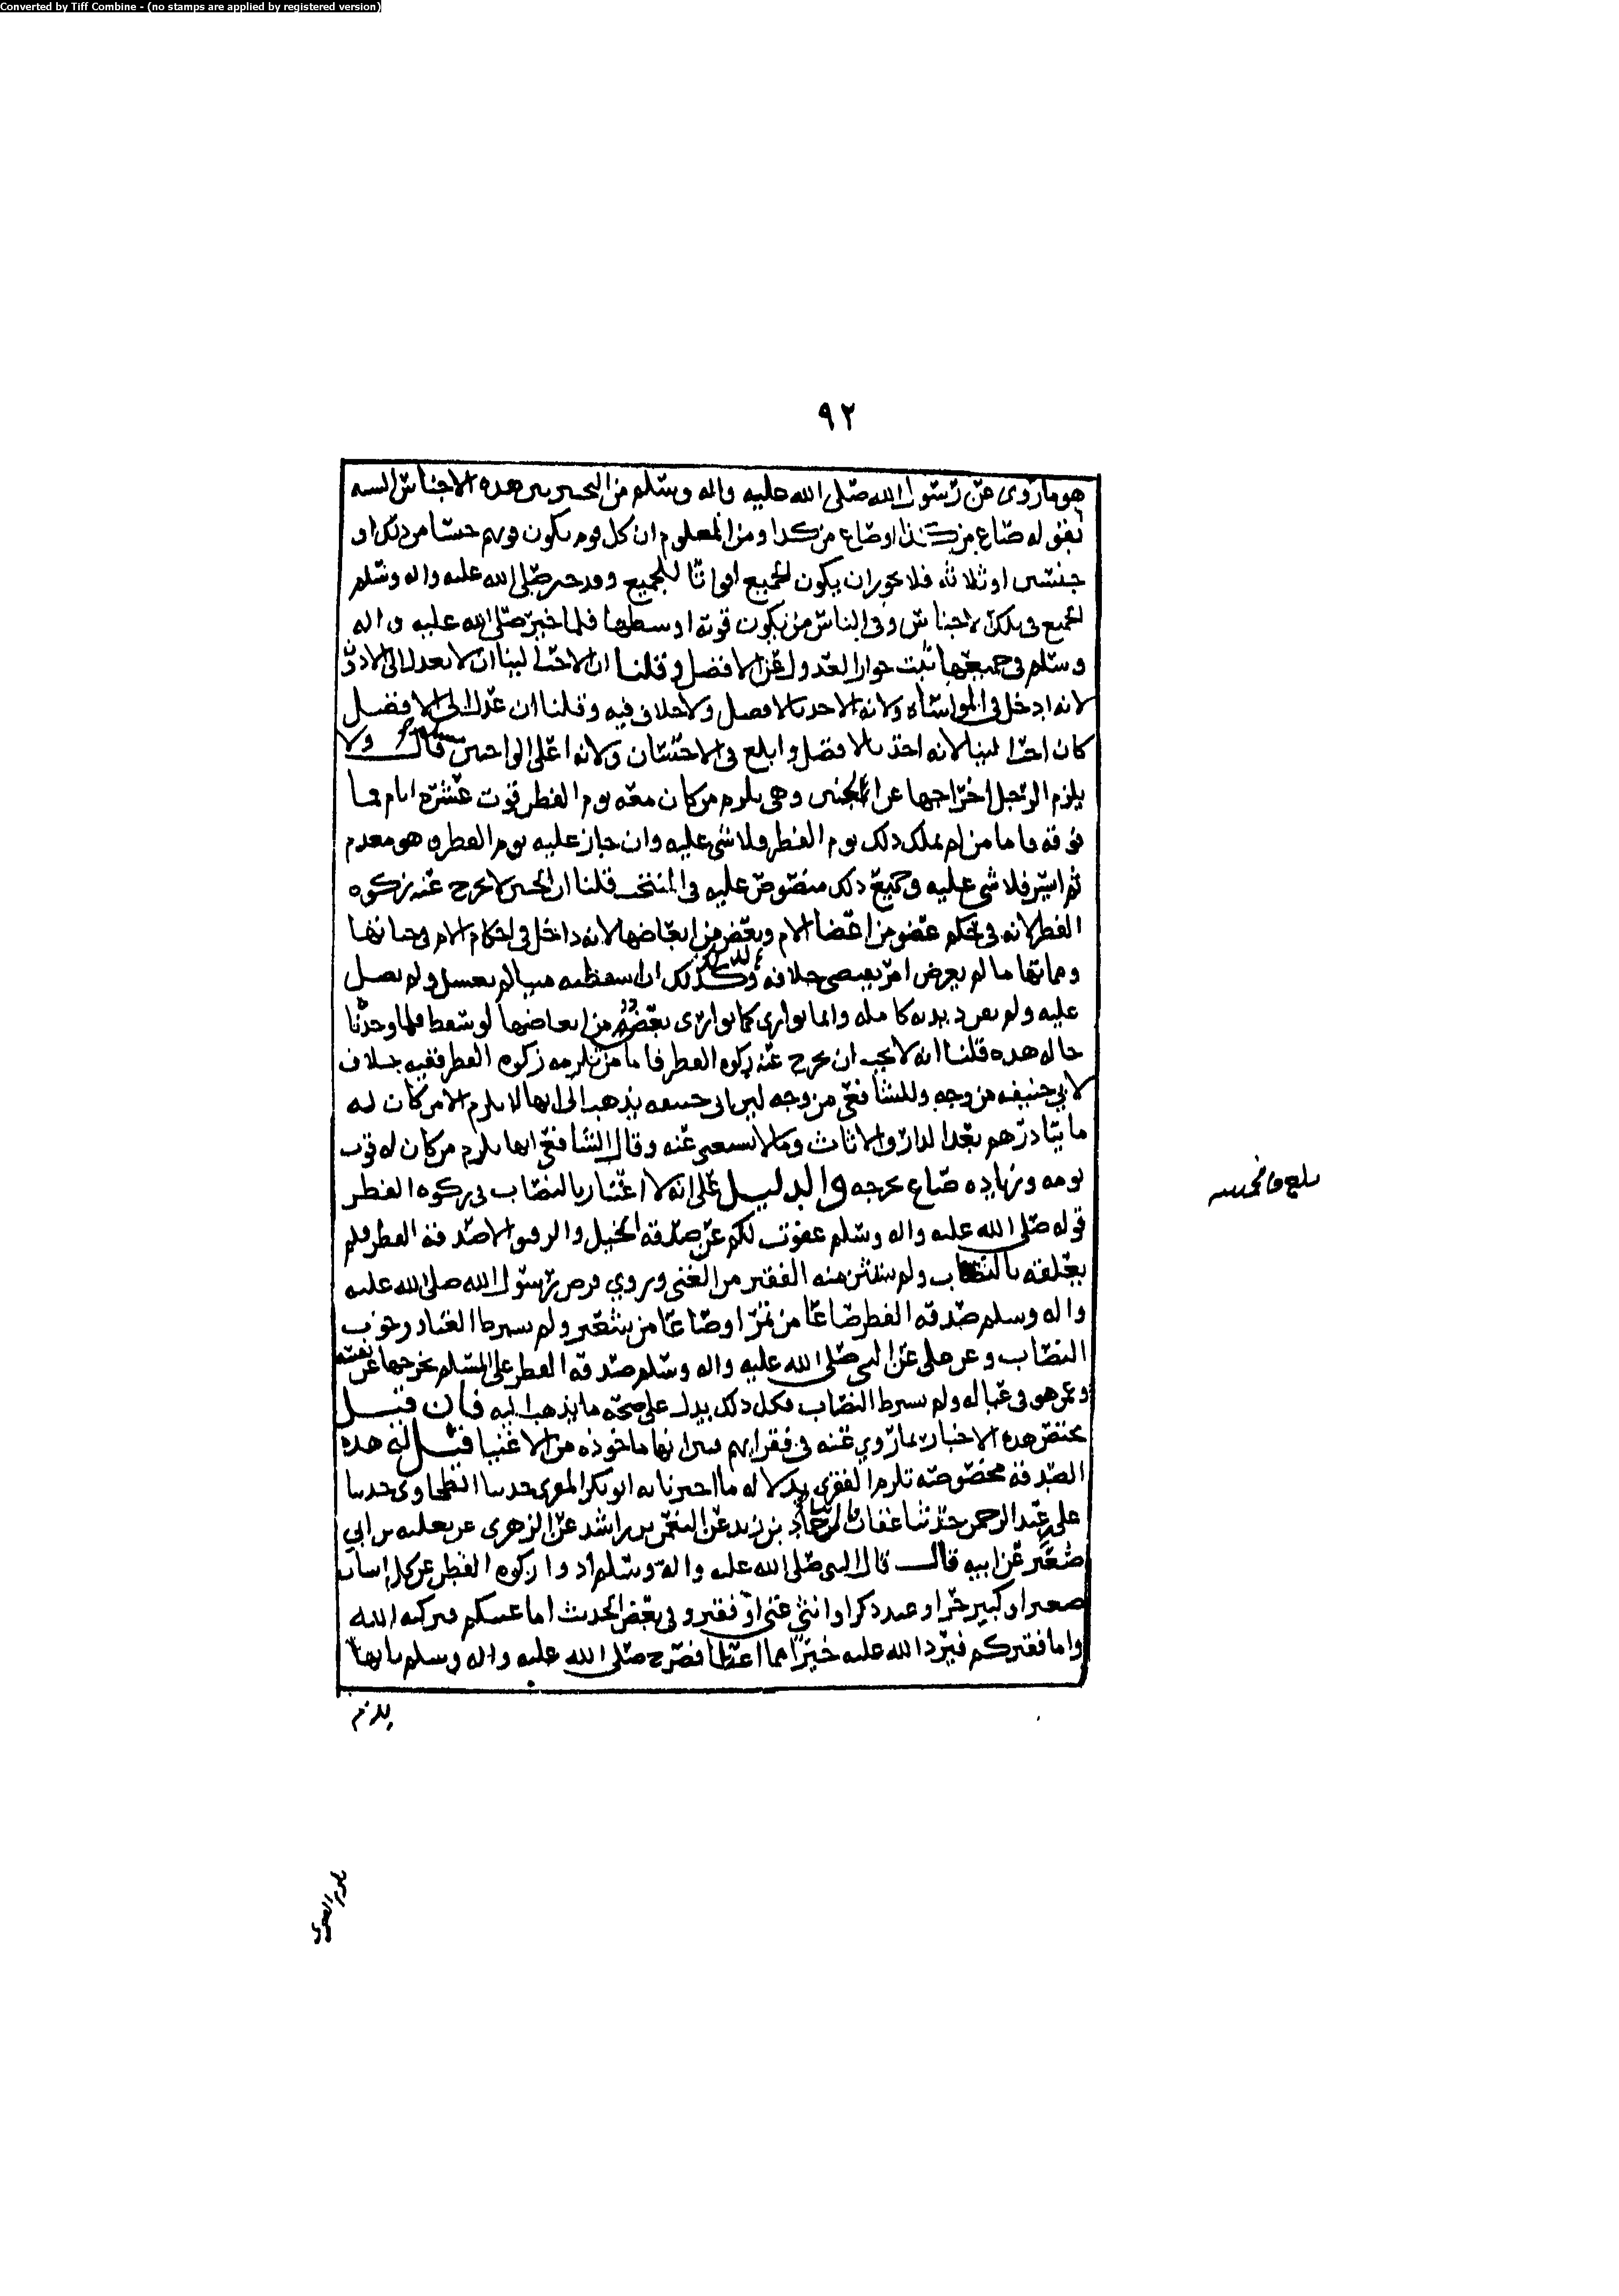 Converted by Tiff Combine - (no stamps are applied by registered version)
٩٢
هو ما روى عن رسول الله صلى الله عليه واله وسلم من التخيير بين هذه الاجناس السته
بقوله صاع من كذا او صاع من كذا ومن المعلوم ان كل قوم يكون قوتهم جنسا من ذلك او
جنسين او ثلاثه فلا يجوز ان يكون الجميع اقواتا للجميع وقد خير صلى الله عليه واله وسلم
الجميع في تلك الاجناس وفي الناس من يكون قوته اوسطها فلما خير صلى الله عليه واله
وسلم في جميعها ثبت جواز العدول عن الافضل وقلنا ان الاحب الينا ان لا يعدل الى الادون
لانه ادخل في المواساه ولانه الاخذ بالافضل ولا خلاف فيه وقلنا ان عدل الى الافضل
كان احب الينا لانه اخذ بالافضل وابلغ في الاحسان ولانه اعلى الواجبين مسئله قال ولا
يلزم الرجل اخراجها عن الجنين وهي يلزم من كان معه يوم الفطر قوت عشرة ايام فما
فوقه فاما من لم يملك ذلك يوم الفطر فلا شي عليه وان جاز عليه يوم الفطر وهو معدم
ثم ايسر فلا شي عليه وجميع ذلك منصوص عليه في المنتخب قلنا ان الجنين لا يخرج عنه زكوه
الفطر لانه في حكم عضو من اعضا الام وبعض من ابعاضها لانه داخل في احكام الام في حياتها
ومماتها ما لم يعرض امر يقتضي خلافه وكذلك ان اسقطته ميتا لم يغسل ولم يصل
عليه ولم يفرد بديه كامله وانما يوارى كما يوارى بعض من ابعاضها لو سقط فلما وجدنا
حاله هذه قلنا انه لا يجب ان يخرج عنه زكوه الفطر فاما من تلزمه زكوه الفطر ففيه خلاف
لابي حنيفه من وجه وللشافعي من وجه لان ابا حنيفه يذهب الى انها لا يلزم الا من كان له
مايتا درهم بعد الدار والاثاث وما لا يستغنى عنه وقال الشافعي انها يلزم من كان له قوت
يومه وزياده صاع يخرجه والدليل على انه لا اعتبار بالنصاب في زكوه الفطر
قوله صلى الله عليه واله وسلم عفوت لكم عن صدقه الخيل والرقيق الا صدقه الفطر فلم
يعلقه بالنصاب ولم يستثن منه الفقير من الغني وروي فرض رسول الله صلى الله عليه
واله وسلم صدقه الفطر صاعا من تمر او صاعا من شعير ولم يشرط الغنا و وجوب
النصاب وعن علي عن النبي صلى الله عليه واله وسلم صدقه الفطر على المسلم يخرجها عن نفسه
وعمن هو في عياله ولم يشرط النصاب فكل ذلك يدل على صحة ما يذهب اليه فان قيل
نخص هذه الاخبار بما روي عنه في فقرايهم فبين انها ماخوذه من الاغنيا قيل له هذه
الصدقة مخصوصه تلزم الفقرى بدلاله ما اخبرنا به ابو بكر المقري حدثنا الطحاوي حدثنا
علي بن عبد الرحمن حدثنا عفان حماد بن زيد عن النعمان بن راشد عن الزهري عن ثعلبه بن ابي
صعير عن ابيه قال قال النبي صلى الله عليه واله وسلم ادوا زكوه الفطر عن كل انسان
صغير او كبير حر او عبد ذكر او انثى غني او فقير وفي بعض الحديث اما غنيكم فيزكيه الله
واما فقيركم فيرد الله عليه خيرا مما اعطا فصرح صلى الله عليه واله وسلم بانها
يلزم